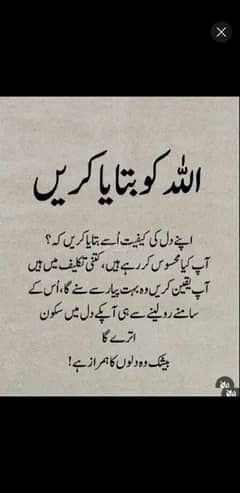 اللہ کو بتایا کریں
اپنے دل کی کیفیت اُسے بتایا کریں کہ؟
آپ کیا محسوس کر رہے ہیں، کتنی تکلیف میں ہیں
آپ یقین کریں وہ بہت پیار سے سنے گا، اُس کے
سامنے رو لینے سے ہی آپکے دل میں سکون
اترے گا
بیشک وہ دلوں کا ہمراز ہے!